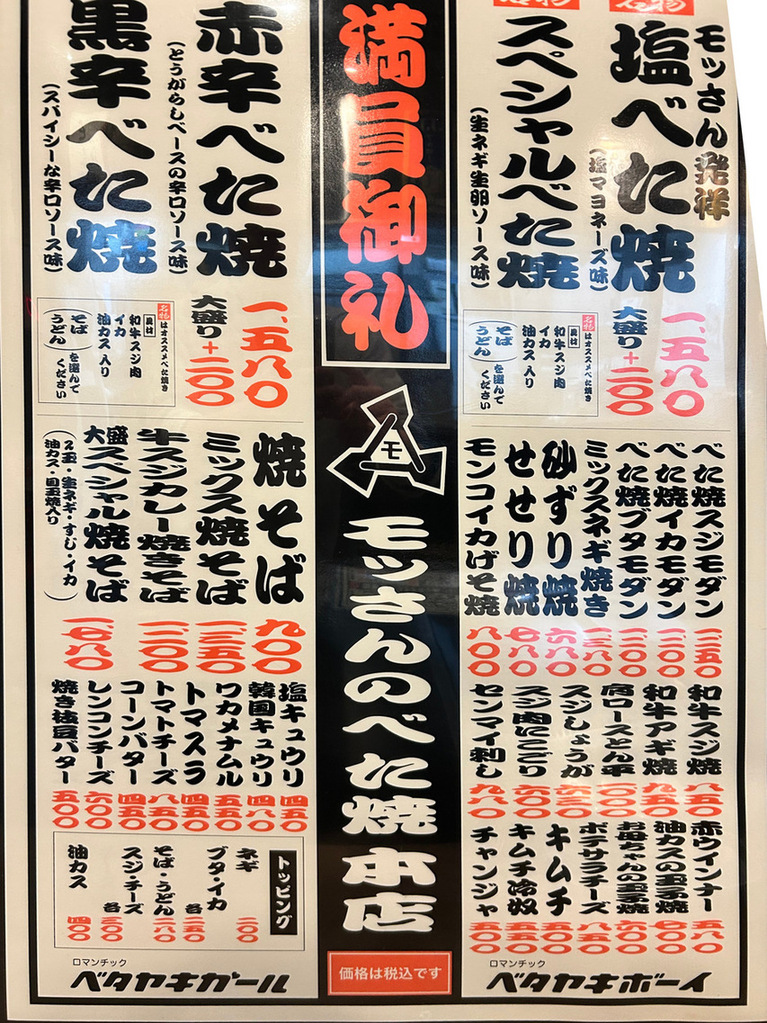 名物
モッさん発祥
塩べた焼
(塩マヨネーズ味)
名物
スペシャルべた焼
(生ネギ生卵ソース味)
一、五八〇
大盛り+二〇〇
名物はオススメべた焼き
具材
和牛スジ肉
イカ
油カス入り
(そば
うどん)を選んで
ください
べた焼スジモダン
一二五〇
べた焼イカモダン
一二〇〇
べた焼ブタモダン
一二〇〇
ミックスネギ焼き
一三八〇
砂ずり焼
六八〇
せせり焼
七八〇
モンコイカげそ焼
八〇〇
和牛スジ焼
八五〇
和牛アギ焼
九五〇
肩ロースとん平
一二〇〇
スジしょうが
六三〇
スジ肉にこごり
六〇〇
センマイ刺し
九八〇
赤ウインナー
五八〇
油カスの玉子焼
七〇〇
お母ちゃんの玉子焼
六〇〇
ポテサラチーズ
八五〇
キムチ
五〇〇
キムチ冷奴
五五〇
チャンジャ
五〇〇
ロマンチック
ベタヤキボーイ
満員御礼
モ
モッさんのべた焼本店
価格は税込です
赤辛べた焼
(とうがらしベースの辛口ソース味)
黒辛べた焼
(スパイシーな辛口ソース味)
一、五八〇
大盛り+二〇〇
名物はオススメべた焼き
具材
和牛スジ肉
イカ
油カス入り
(そば
うどん)を選んで
ください
焼そば
九〇〇
ミックス焼そば
一三五〇
牛スジカレー焼きそば
一二〇〇
大盛スペシャル焼そば
(2玉・生ネギ・すじ・イカ
油カス・目玉焼入り)
一七八〇
塩キュウリ
四五〇
韓国キュウリ
四八〇
ワカメナムル
五五〇
トマスラ
四五〇
トマトチーズ
八五〇
コーンバター
四五〇
レンコンチーズ
六〇〇
焼き枝豆バター
五〇〇
トッピング
ネギ
二〇〇
ブタ・イカ
各二五〇
そば・うどん
二八〇
スジ・チーズ
各三〇〇
油カス
四〇〇
ロマンチック
ベタヤキガール